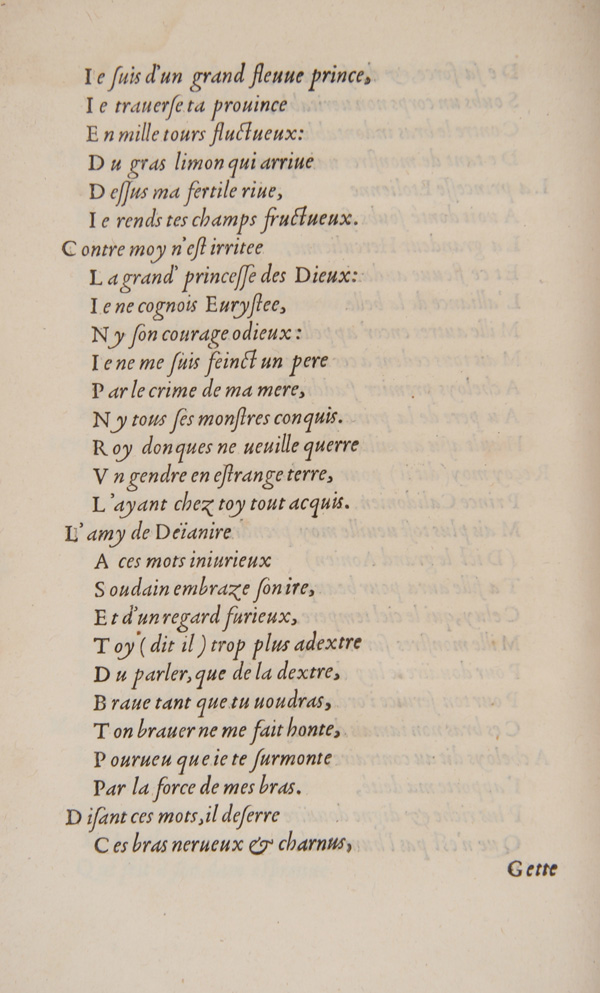 Ie ſuis d'un grand fleuue prince,
Ie trauerſe ta prouince
En mille tours fluctueux:
Du gras limon qui arriue
Deſſus ma fertile riue,
Ie rends tes champs fructueux.
Contre moy n'eſt irritee
La grand' princeſſe des Dieux:
Ie ne cognois Euryſtee,
Ny ſon courage odieux:
Ie ne me ſuis feinct un pere
Par le crime de ma mere,
Ny tous ſes monſtres conquis.
Roy donques ne ueuille querre
Vn gendre en eſtrange terre,
L'ayant chez toy tout acquis.
L'amy de Deïanire
A ces mots iniurieux
Soudain embraze ſon ire,
Et d'un regard furieux,
Toy (dit il) trop plus adextre
Du parler, que de la dextre,
Braue tant que tu uoudras,
Ton brauer ne me fait honte,
Pourueu que ie te ſurmonte
Par la force de mes bras.
Diſant ces mots, il deſerre
Ces bras nerueux & charnus,
Gette